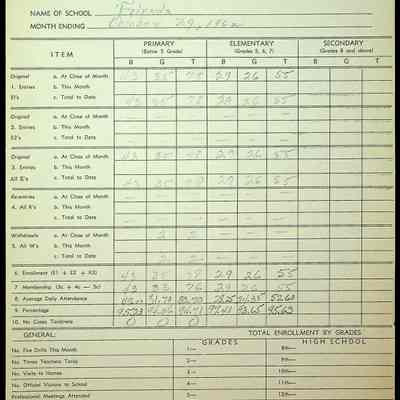 NAME OF SCHOOL Friends
MONTH ENDING October 29, 1962
ITEM
PRIMARY ELEMENTARY SECONDARY
(Below 5 Grade) (Grades 5, 6, 7) (Grades 8 and above)
B G T B G T B G T
Original a. At Close of Month 43 35 78 29 26 55
1. Entries b. This Month — — — — — —
E1's c. Total to Date 43 35 78 29 26 55
Original a. At Close of Month — — — — — —
2. Entries b. This Month
E2's c. Total to Date — — — — — —
Original a. At Close of Month 43 35 78 29 26 55
3. Entries b. This Month
All E's c. Total to Date 43 35 78 29 26 55
Re-entries a. At Close of Month
4. All R's b. This Month
c. Total to Date
Withdrawals a. At Close of Month — 2 2 — — —
5. All W's b. This Month
c. Total to Date — 2 2 — — —
6. Enrollment (E1 + E2 + R3) 43 35 78 29 26 55
7. Membership (3c + 4c — 5c) 43 33 76 29 26 55
8. Average Daily Attendance 52.60
9. Percentage 95.23 93.65 95.63
10. No. Cases Tardiness 0 0 0
GENERAL: TOTAL ENROLLMENT BY GRADES
GRADES HIGH SCHOOL
No. Fire Drills This Month 1— 8th—
No. Times Teachers Tardy 2— 9th—
No. Visits to Homes 3— 10th—
No. Official Visitors to School 4— 11th—
Professional Meetings Attended 5— 12th—